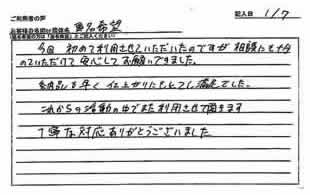 ご利用者の声
記入日 1/7
お客様のお名前or団体名 匿名希望
(匿名希望の方は「匿名希望」とご記入ください)
今回 初めて利用させていただいたのですが 相談にも
のっていただけて 安心して お願いできました。
納品も早く 仕上がりにもとても 満足でした。
これからの活動の中でまた利用させて頂きます
丁寧な対応ありがとうございました